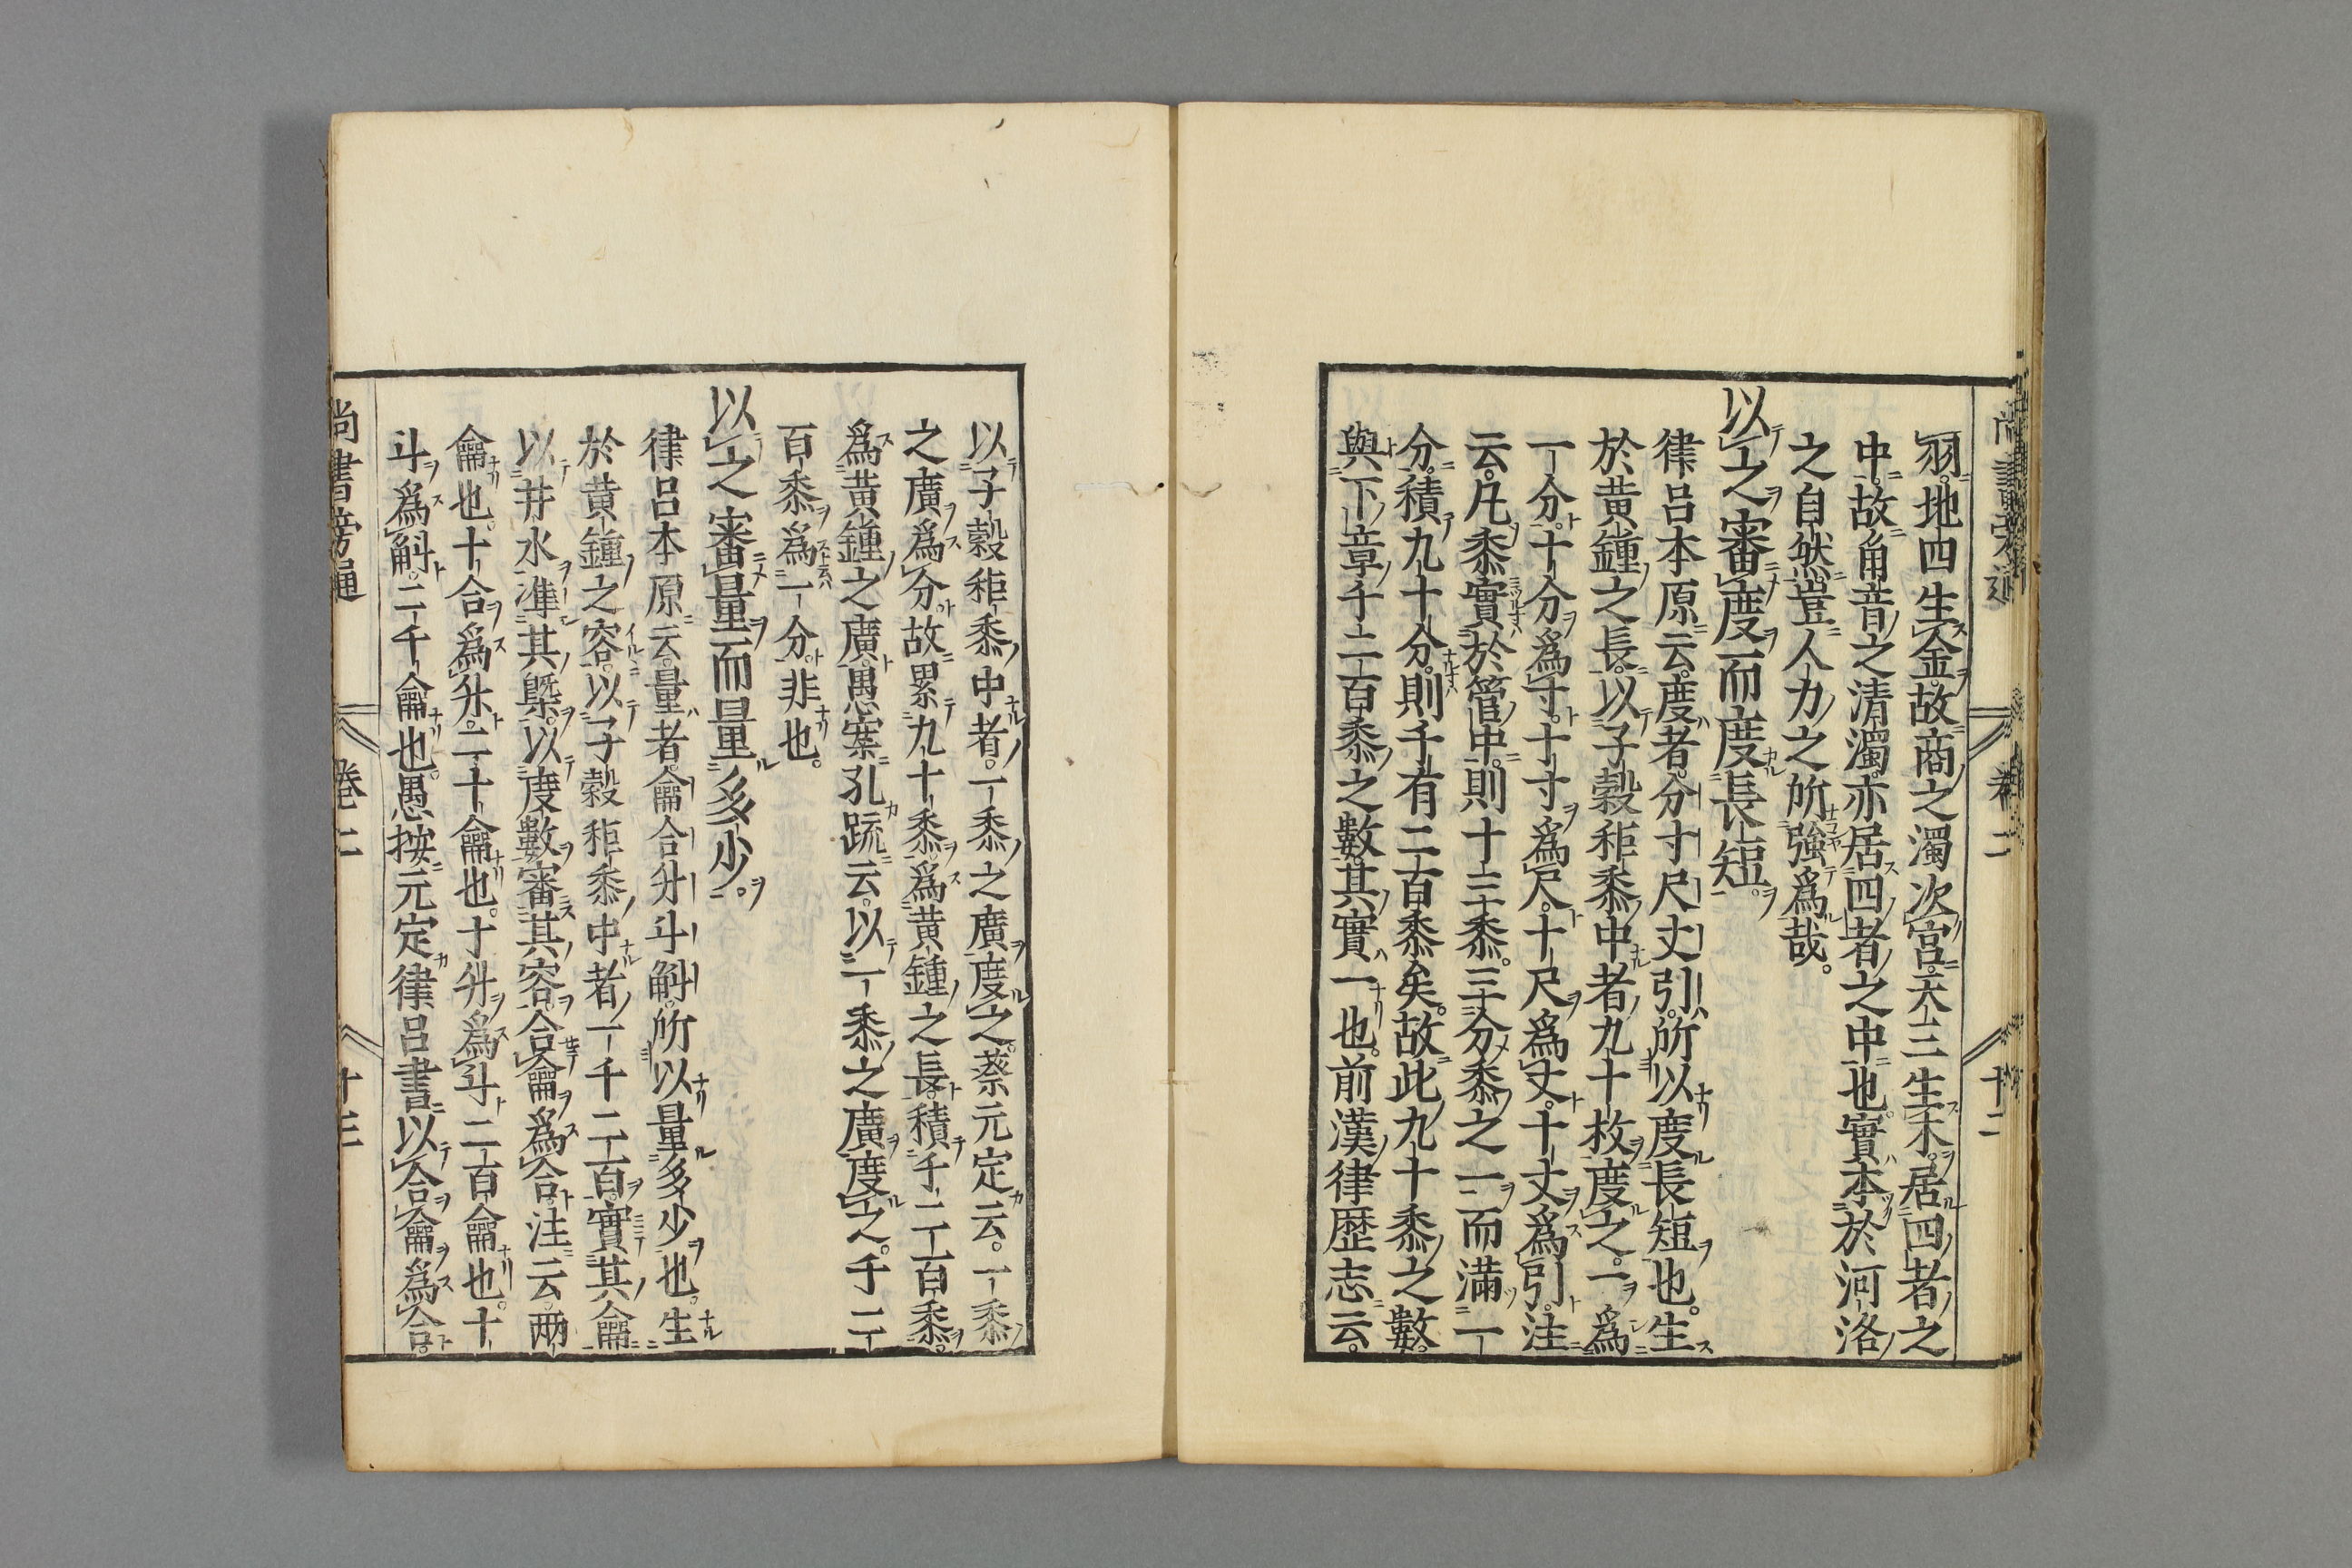 羽地四生金故商之濁次宮天三生木居四者之
中故角音之清濁亦居四者之中也實本於河洛
之自然豈人力之所強爲哉
以之審度而度長短
律呂本原云度者分寸尺丈引所以度長短也生
於黃鍾之長以子穀秬黍中者九十枚度之一爲
一分十分爲寸十寸爲尺十尺爲丈十丈爲引注
云凡黍實於管中則十三黍三分黍之一而滿一
分積九十分則千有二百黍矣故此九十黍之數
與下章千二百黍之數其實一也前漢律歷志云
尚書旁通 卷二 十二
以子穀秬黍中者一黍之廣度之蔡元定云一黍
之廣爲分故累九十黍爲黃鍾之長積千二百黍
爲黃鍾之廣愚案孔疏云以一黍之廣度之千二
百黍爲一分非也
以之審量而量多少
律呂本原云量者龠合升斗斛所以量多少也生
於黃鍾之容以子穀秬黍中者一千二百實其龠
以井水準其槩以度數審其容合龠爲合注云兩
龠也十合爲升二十龠也十升爲斗二百龠也十
斗爲斛二千龠也愚按元定律呂書以合龠爲合
尚書旁通 卷二 十三